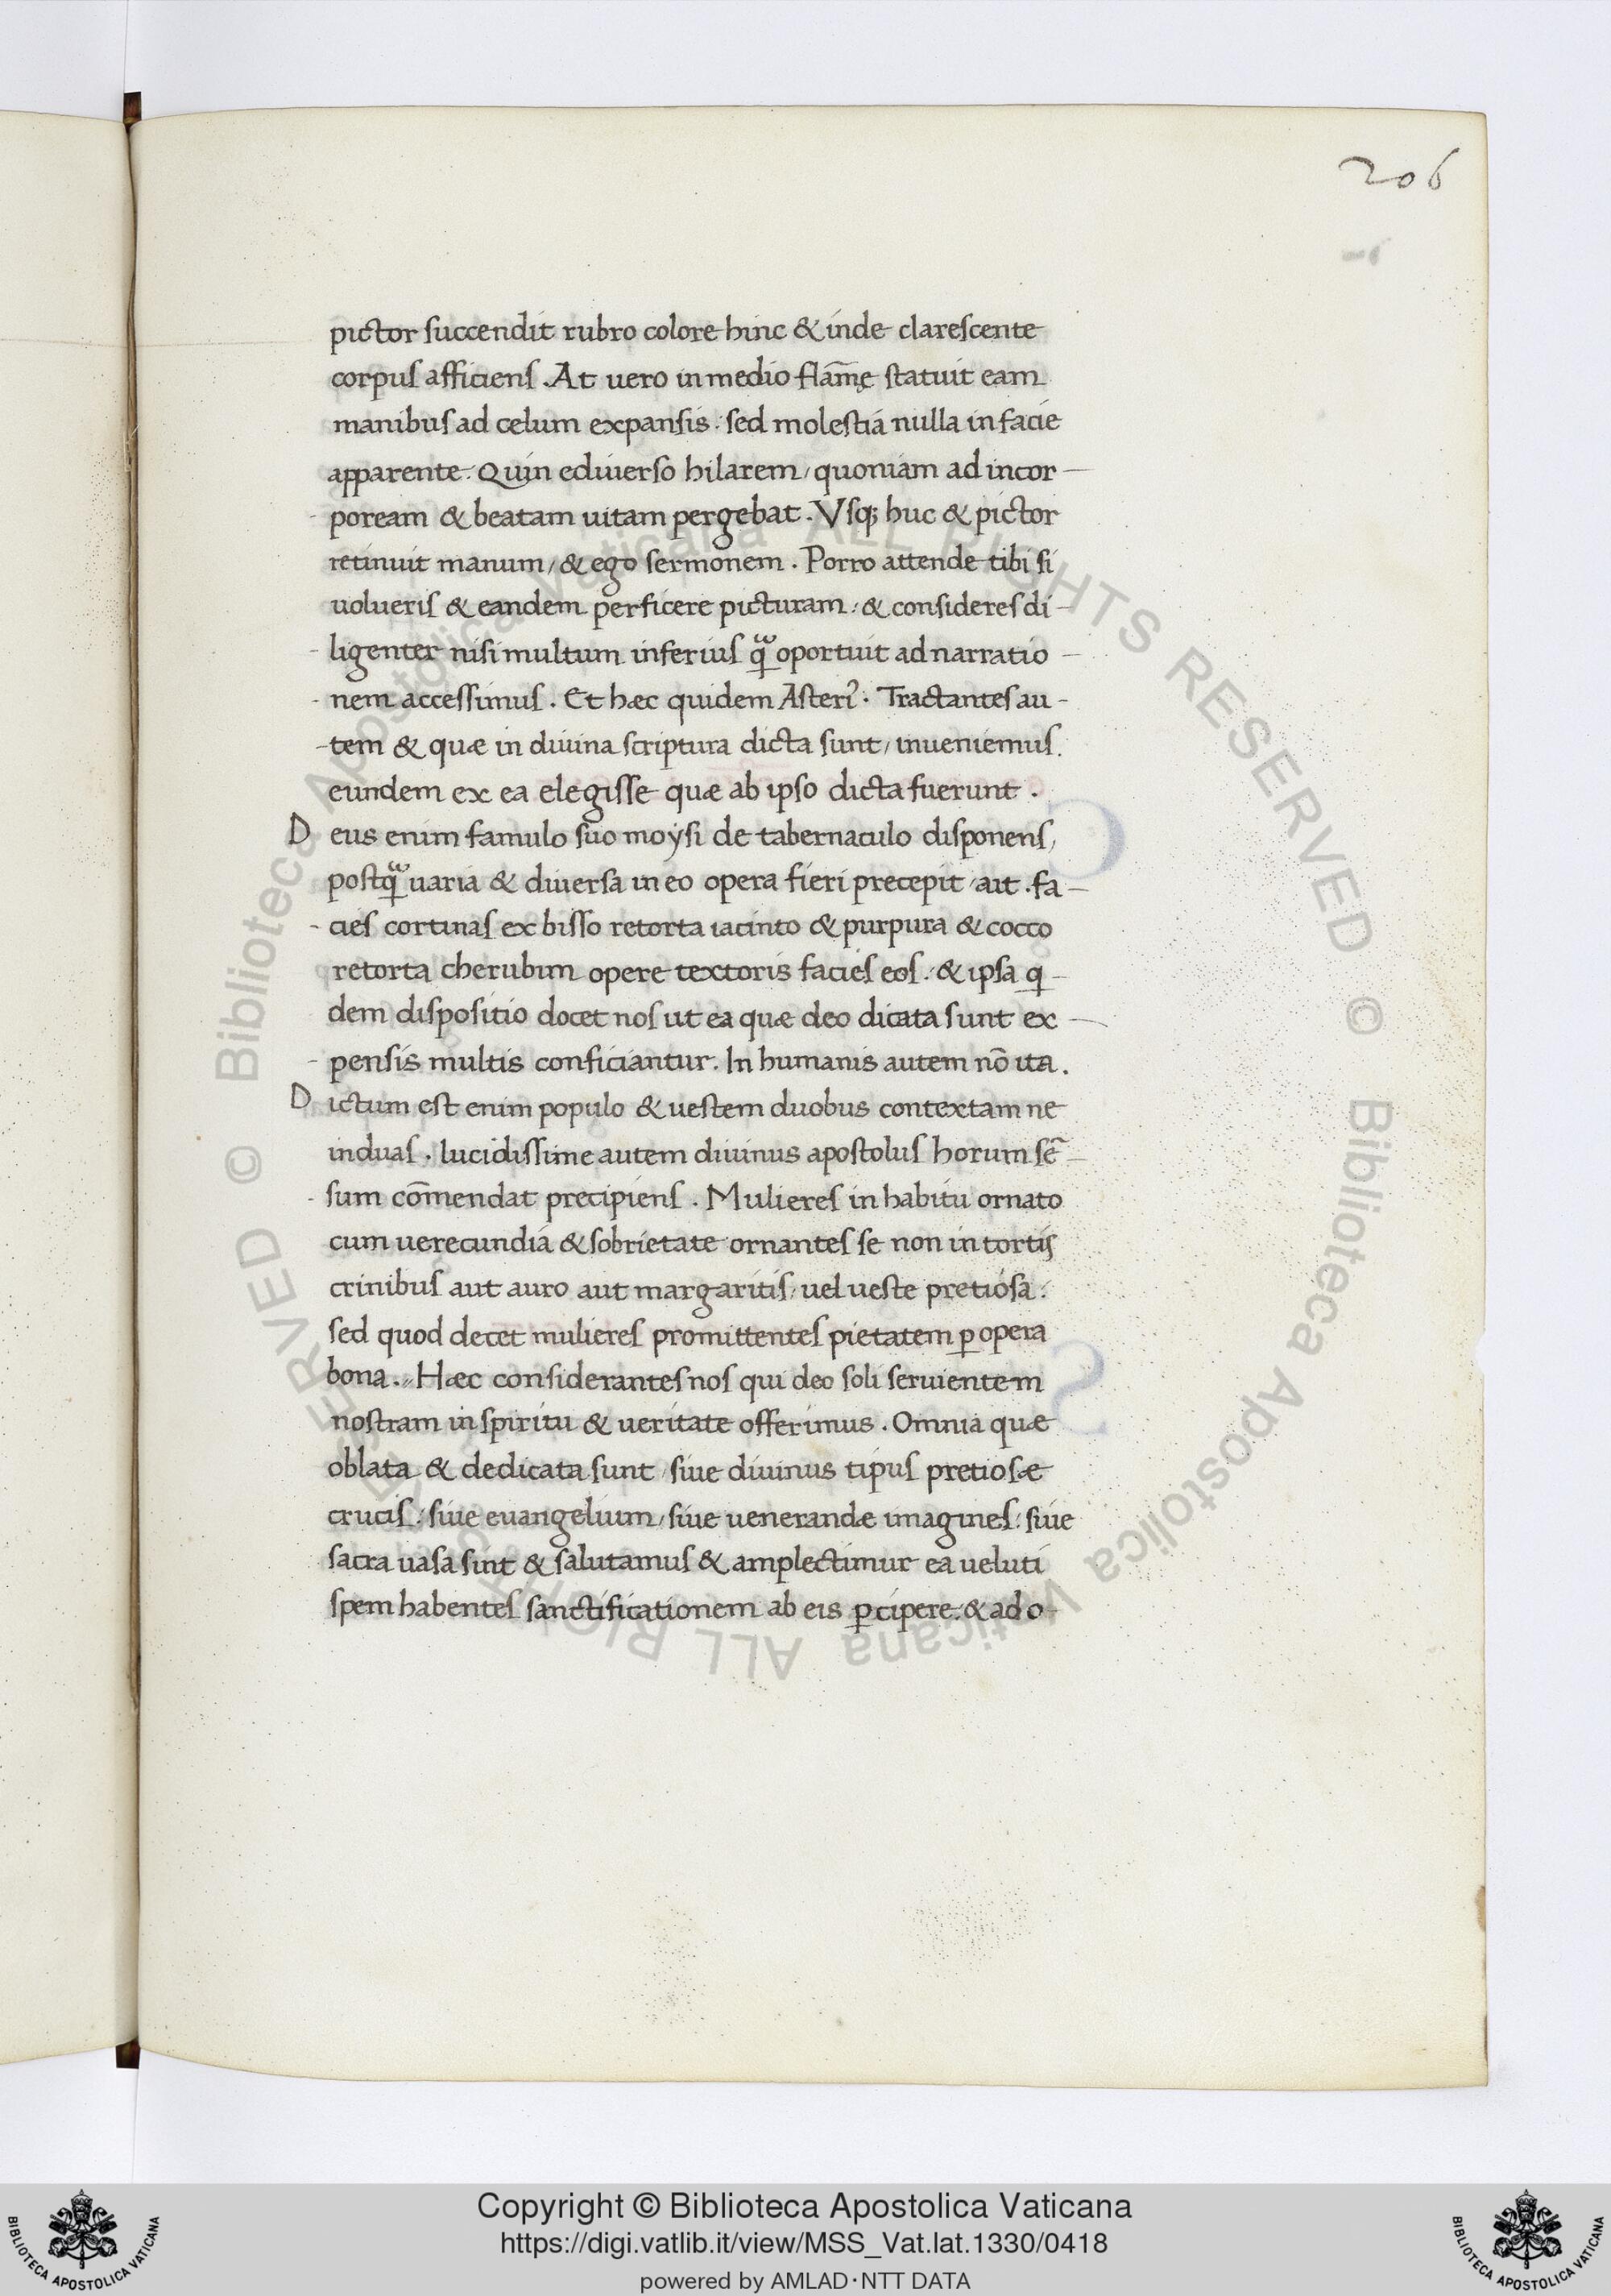 206
pictor succendit rubro colore hinc & inde clarescente
corpus afficiens . At uero in medio flam̄ę statuit eam
manibus ad celum expansis : sed molestia nulla in facie
apparente . Quin ediuerso hilarem / quoniam ad incor-
-poream & beatam uitam pergebat . Vsq; huc & pictor
retinuit manum / & ego sermonem . Porro attende tibi si
uolueris & eandem perficere picturam : & consideres di-
-ligenter nisi multum inferius qꝫ oportuit ad narratio-
-nem accessimus . Et hæc quidem Asteri⁹ . Tractantes au-
-tem & quæ in diuina scriptura dicta sunt / inueniemus
eundem ex ea elegisse quæ ab ipso dicta fuerunt .
D eus enim famulo suo moÿsi de tabernaculo disponens /
postqꝫ uaria & diuersa in eo opera fieri precepit / ait . fa-
-cies cortinas ex bisso retorta iacinto & purpura & cocco
retorta cherubim opere textoris facies eos : & ipsa q-
dem dispositio docet nos ut ea quæ deo dicata sunt ex-
-pensis multis conficiantur . In humanis autem nō ita .
D ictum est enim populo & uestem duobus contextam ne
induas . lucidissime autem diuinus apostolus horum sē-
-sum com̄endat precipiens . Mulieres in habitu ornato
cum uerecundia & sobrietate ornantes se non in tortis
crinibus aut auro aut margaritis / uel ueste pretiosa :
sed quod decet mulieres promittentes pietatem ꝑ opera
bona . Hæc considerantes nos qui deo soli seruientem
nostram in spiritu & ueritate offerimus . Omnia quæ
oblata & dedicata sunt / siue diuinus tipus pretiosæ
crucis : siue euangelium / siue uenerandæ imagines : siue
sacra uasa sint & salutamus & amplectimur ea ueluti
spem habentes sanctificationem ab eis ꝑcipere : & ad o-
© Biblioteca Apostolica Vaticana ALL RIGHTS RESERVED © Biblioteca Apostolica Vaticana ALL RIGHTS RESERVED
Copyright © Biblioteca Apostolica Vaticana
https://digi.vatlib.it/view/MSS_Vat.lat.1330/0418
powered by AMLAD·NTT DATA
BIBLIOTECA APOSTOLICA VATICANA
BIBLIOTECA APOSTOLICA VATICANA